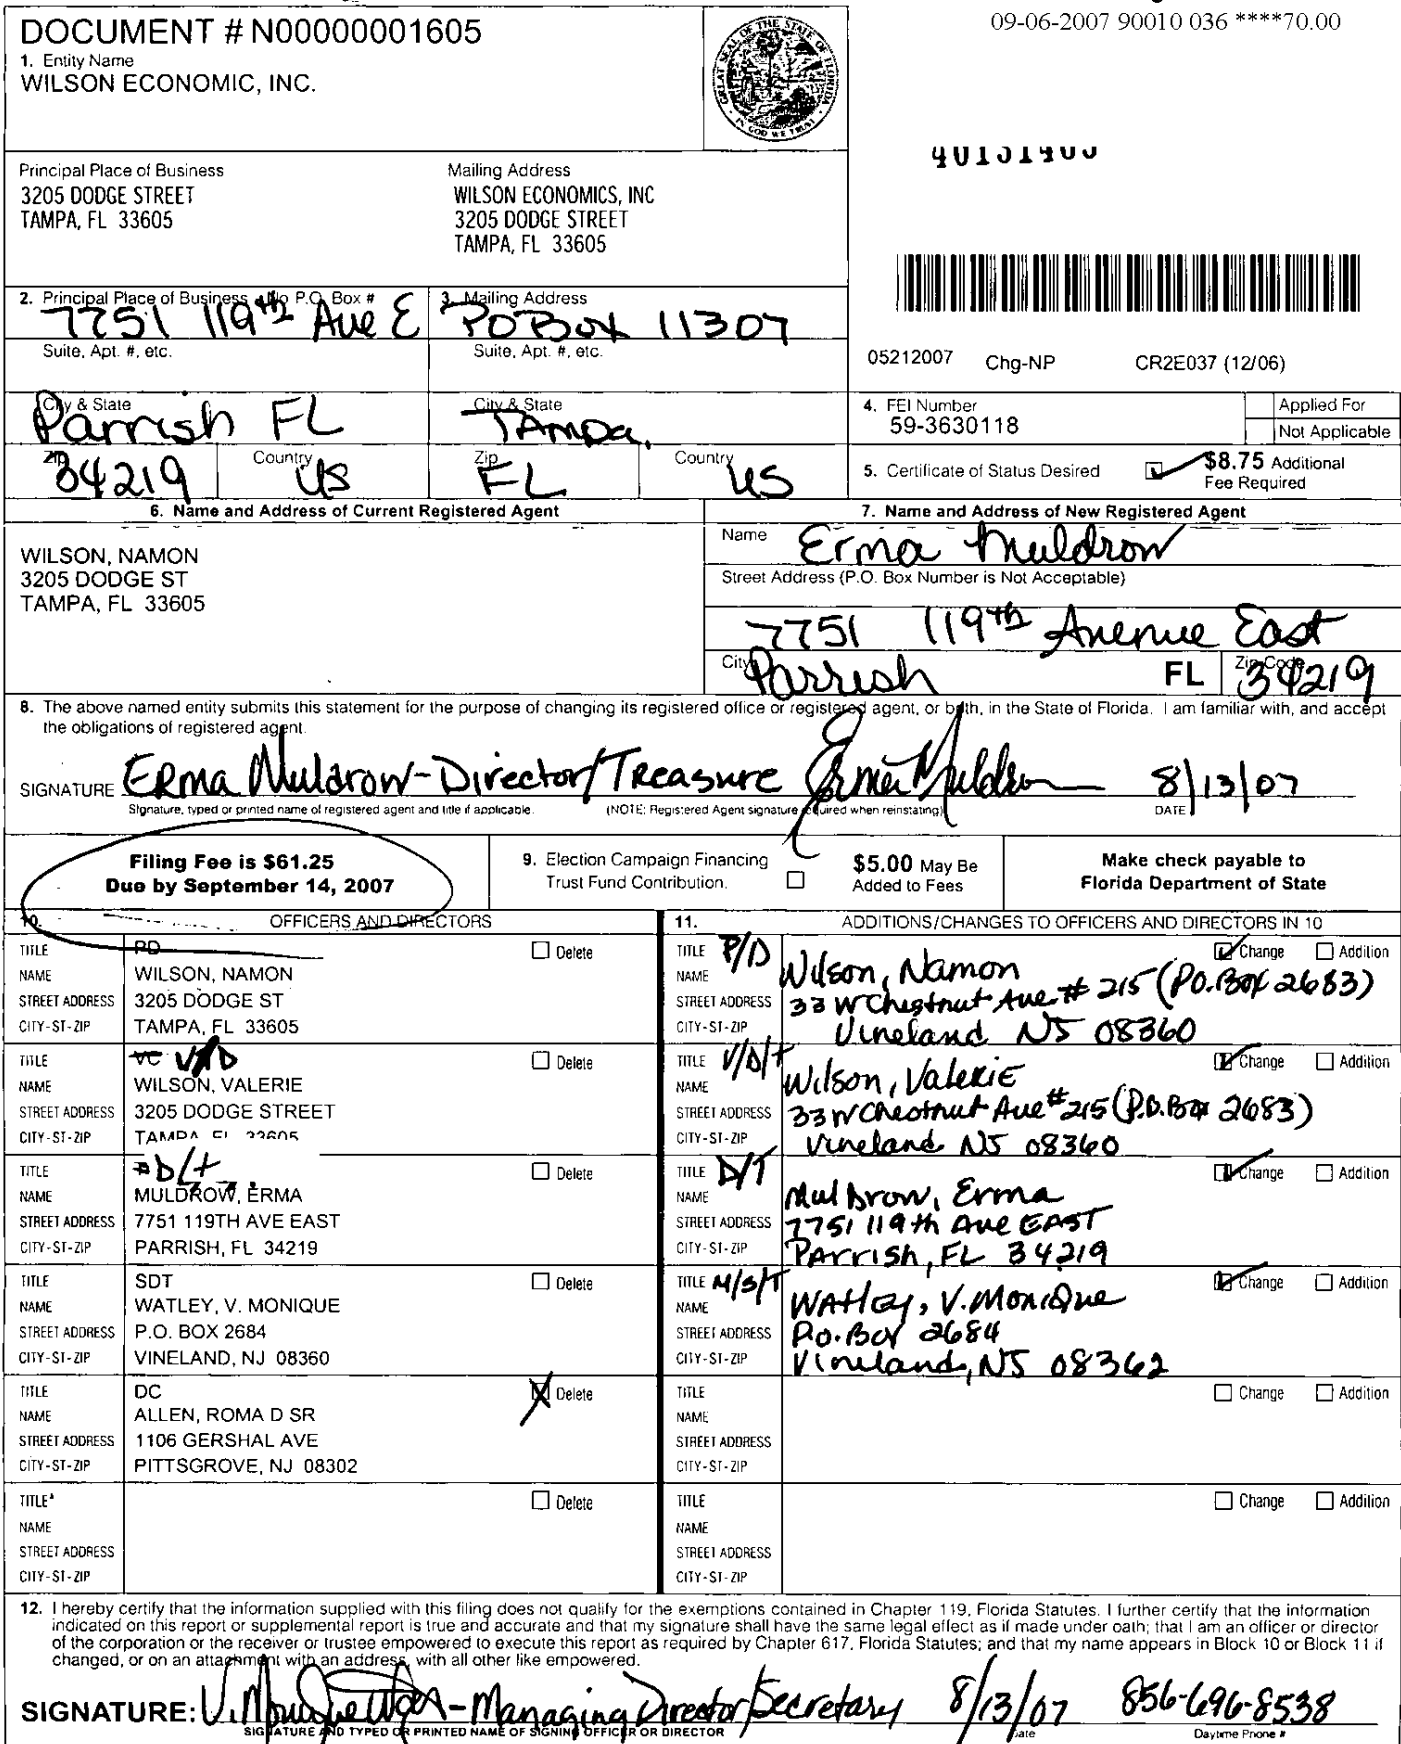 09-06-2007 90010 036 ****70.00
DOCUMENT # N00000001605
1. Entity Name
WILSON ECONOMIC, INC.
GREAT SEAL OF THE STATE OF FLORIDA
IN GOD WE TRUST
Principal Place of Business
3205 DODGE STREET
TAMPA, FL 33605
Mailing Address
WILSON ECONOMICS, INC
3205 DODGE STREET
TAMPA, FL 33605
2. Principal Place of Business - No P.O. Box #
7751 119th Ave E
3. Mailing Address
PO Box 11307
Suite, Apt. #, etc.
Suite, Apt. #, etc.
05212007 Chg-NP CR2E037 (12/06)
City & State
Parrish FL
City & State
Tampa,
4. FEI Number
59-3630118
Applied For
Not Applicable
Zip
34219
Country
US
Zip
FL
Country
US
5. Certificate of Status Desired
$8.75 Additional
Fee Required
6. Name and Address of Current Registered Agent
WILSON, NAMON
3205 DODGE ST
TAMPA, FL 33605
7. Name and Address of New Registered Agent
Name
Erma Muldrow
Street Address (P.O. Box Number is Not Acceptable)
7751 119th Avenue East
City
Parrish
FL
Zip Code
34219
8. The above named entity submits this statement for the purpose of changing its registered office or registered agent, or both, in the State of Florida. I am familiar with, and accept
the obligations of registered agent.
SIGNATURE Erma Muldrow-Director/Treasure Erma Muldrow 8/13/07
Signature, typed or printed name of registered agent and title if applicable. (NOTE: Registered Agent signature required when reinstating) DATE
Filing Fee is $61.25
Due by September 14, 2007
9. Election Campaign Financing
Trust Fund Contribution.
$5.00 May Be
Added to Fees
Make check payable to
Florida Department of State
10. OFFICERS AND DIRECTORS
TITLE PD Delete
NAME WILSON, NAMON
STREET ADDRESS 3205 DODGE ST
CITY-ST-ZIP TAMPA, FL 33605
TITLE VC V/D Delete
NAME WILSON, VALERIE
STREET ADDRESS 3205 DODGE STREET
CITY-ST-ZIP TAMPA FL 33605
TITLE D/T Delete
NAME MULDROW, ERMA
STREET ADDRESS 7751 119TH AVE EAST
CITY-ST-ZIP PARRISH, FL 34219
TITLE SDT Delete
NAME WATLEY, V. MONIQUE
STREET ADDRESS P.O. BOX 2684
CITY-ST-ZIP VINELAND, NJ 08360
TITLE DC Delete
NAME ALLEN, ROMA D SR
STREET ADDRESS 1106 GERSHAL AVE
CITY-ST-ZIP PITTSGROVE, NJ 08302
TITLE Delete
NAME
STREET ADDRESS
CITY-ST-ZIP
11. ADDITIONS/CHANGES TO OFFICERS AND DIRECTORS IN 10
TITLE P/D Change Addition
NAME Wilson, Namon
STREET ADDRESS 33 W Chestnut Ave. # 215 (P.O. Box 2683)
CITY-ST-ZIP Vineland NJ 08360
TITLE V/D/T Change Addition
NAME Wilson, Valerie
STREET ADDRESS 33 W Chestnut Ave #215 (P.O. Box 2683)
CITY-ST-ZIP Vineland NJ 08360
TITLE D/T Change Addition
NAME Muldrow, Erma
STREET ADDRESS 7751 119th Ave EAST
CITY-ST-ZIP PArrish, FL 34219
TITLE M/S/T Change Addition
NAME WAtley, V. Monique
STREET ADDRESS P.O. Box 2684
CITY-ST-ZIP Vineland, NJ 08362
TITLE Change Addition
NAME
STREET ADDRESS
CITY-ST-ZIP
TITLE Change Addition
NAME
STREET ADDRESS
CITY-ST-ZIP
12. I hereby certify that the information supplied with this filing does not qualify for the exemptions contained in Chapter 119, Florida Statutes. I further certify that the information
indicated on this report or supplemental report is true and accurate and that my signature shall have the same legal effect as if made under oath; that I am an officer or director
of the corporation or the receiver or trustee empowered to execute this report as required by Chapter 617, Florida Statutes; and that my name appears in Block 10 or Block 11 if
changed, or on an attachment with an address, with all other like empowered.
SIGNATURE: V. Monique Watley - Managing Director/Secretary 8/13/07 856-696-8538
SIGNATURE AND TYPED OR PRINTED NAME OF SIGNING OFFICER OR DIRECTOR Date Daytime Phone #